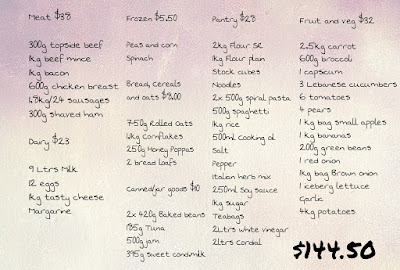 Meat $38
300g topside beef
1kg beef mince
1kg bacon
600g chicken breast
1.8kg/24 sausages
300g shaved ham
Dairy $23
9 Ltrs Milk
12 eggs
1kg tasty cheese
Margarine
Frozen $5.50
Peas and corn
Spinach
Bread, cereals
and oats $8.00
750g Rolled Oats
1kg Cornflakes
250g Honey Poppas
2 bread loafs
Canned/jar goods $10
2x 420g Baked beans
185g Tuna
500g jam
395g sweet condmilk
Pantry $28
2kg Flour SR
1kg Flour plan
Stock cubes
Noodles
2x 500g spiral pasta
500g spaghetti
1kg rice
500ml Cooking oil
Salt
Pepper
Italian herb mix
250ml Soy sauce
1kg sugar
Teabags
2Ltrs white vinegar
2ltrs Cordial
Fruit and veg $32
2.5kg carrot
600g broccoli
1 capsicum
3 Lebanese cucumbers
6 tomatoes
4 pears
1kg bag small apples
1kg bananas
200g green beans
1 red onion
1kg bag Brown onion
1 iceberg lettuce
Garlic
4kg potatoes
$144.50